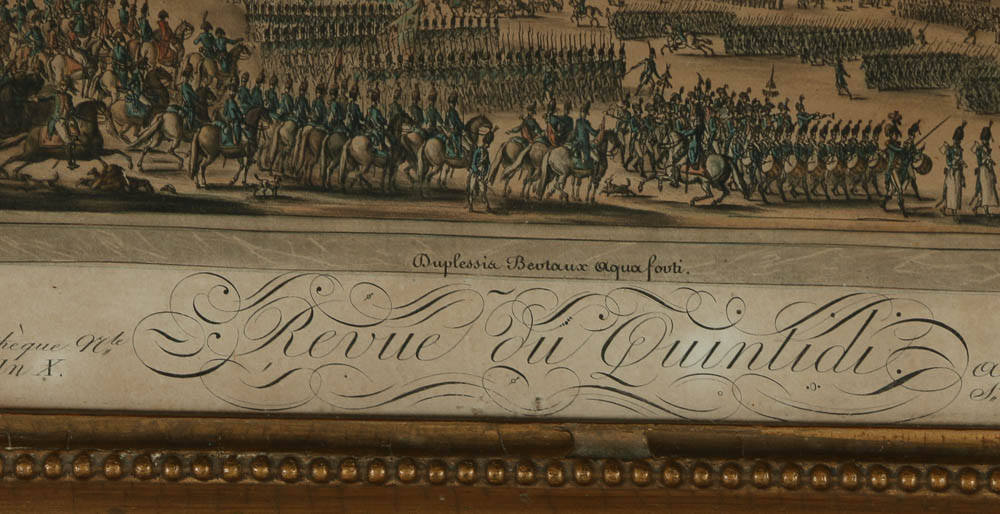 Duplessis Bertaux aqua forti.
Revue du Quintidi
hèque Nle
An X.